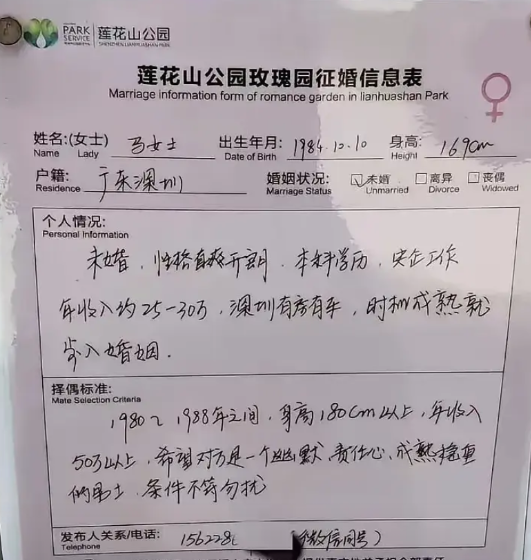 PARK SERVICE 莲花山公园
SHENZHEN LIANHUASHAN PARK
莲花山公园玫瑰园征婚信息表
Marriage information form of romance garden in lianhuashan Park
姓名:(女士) 马女士 出生年月: 1984.10.10 身高: 169cm
Name Lady Date of Birth Height
户籍: 广东深圳 婚姻状况: 未婚 离异 丧偶
Residence Marriage Status Unmarried Divorce Widowed
个人情况:
Personal Information
未婚，性格直爽开朗。本科学历，央企工作
年收入约25-30万，深圳有房有车，时机成熟就
步入婚姻.
择偶标准:
Mate Selection Criteria
1980~1988年之间，身高180cm以上，年收入
50万以上，希望对方是一个幽默、责任心、成熟稳重
的男士，条件不符勿扰
发布人关系/电话: 156228 (微信同号)
Telephone